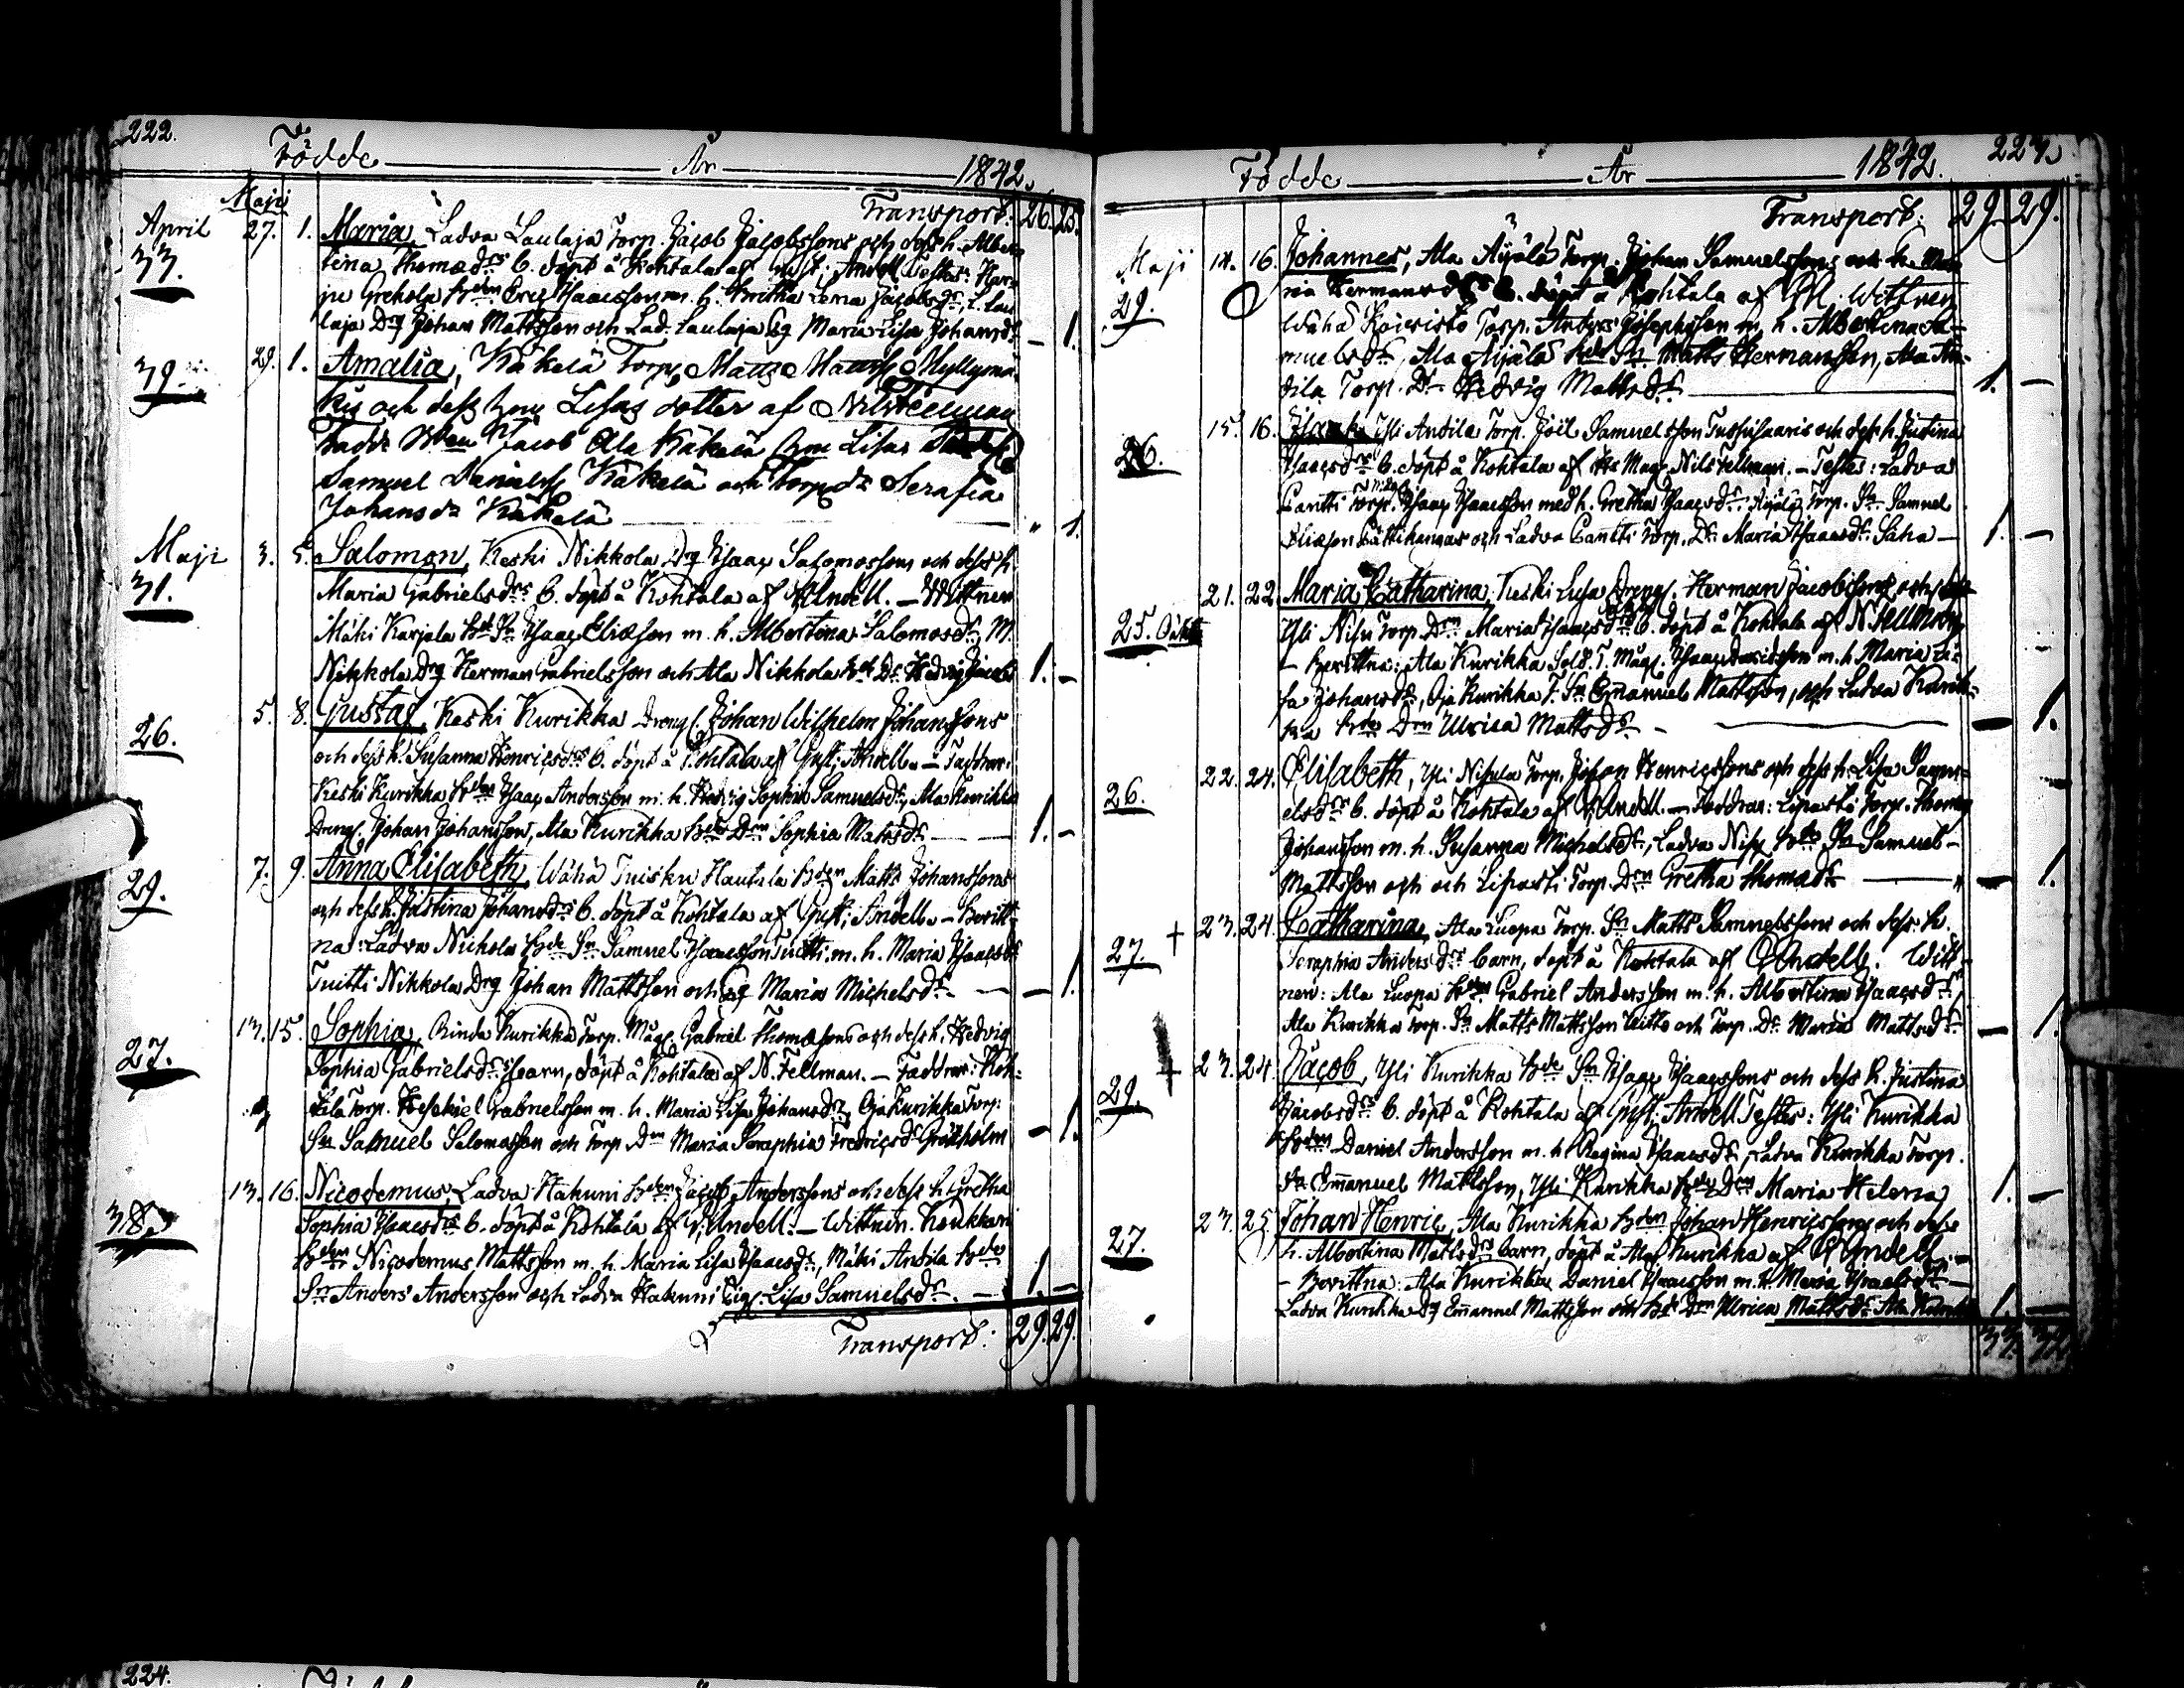 222.
Födde År 1842.
Maji Transport: 26. 25.
April 27. 1. Maria, Ladva Laulaja Torp. Jacob Jacobssons och dess h. Alber
33. tina Thomædrs b. döpt å Kohtala af Andell. Testes: Har
ju Grekola Eric Isaacsson m. h. Lena Jacobsdr, L. Lau
laja Drg Johan Mattsson och Lad. Laulaja Maria Lisa Johansdr — 1.
39. 29. 1. Amalia, Käkelä Torp. Matts Mattss Myllymä
och dess hru Lisas dotter af Nils Fellman
Fadd. Jacob Ala Käkelä hru Lisa
Samuel Daniels Käkelä och Torp dr Serafia
Johansdr Käkelä " 1.
Maji 3. 5. Salomon, Keski Nikkola Drg Isaac Salomossons och dess h.
31. Maria Gabrielsdrs b. döpt å Kohtala af Andell. — Wittnen
Mäki Karjala Isaac Eliæson m. h. Albertina Salomosdr, M.
Nikkola Drg Herman Gabrielsson och Ala Nikkola Dr Hedvig Jacobs 1. —
26. 5. 8. Gustaf, Keski Kurikka Drengs. Johan Wilhelm Johanssons
och dess h. Susanna Henricsdrs b. döpt å Kohtala af Gust: Andell. — Faddrar:
Keski Kurikka Isaac Andersson m. h. Hedvig Sophia Samuelsdr, Ala Kurikka
Drengs. Johan Johansson, Ala Kurikka Drn Sophia Mattsdr — 1. —
29. 7. 9. Anna Elisabeth, Wähä Tuisku Hautala Matts Johanssons
och dess h. Justina Johansdrs b. döpt å Kohtala af Gust: Andell. — Bevitt-
na: Ladva Nickola Sn Samuel Isaacsson Tuitti m. h. Maria Isaacsdr
Tuitti Nikkola Drg Johan Mattsson och Maria Michelsdr — — 1.
27. 13. 15. Sophia, Rinda Kurikka Torp. Måg. Gabriel Thomæsons och dess h. Hedvig
Sophia Gabrielsdrs barn, döpt å Kohtala af N. Fellman. — Faddrar: Koh-
tala Torp. Hesekiel Gabrielsson m. h. Maria Lisa Johansdr, Oja Kurikka Torp.
Sn Samuel Salomosson och Torp Drn Maria Seraphia Fredricsdr Grönholm — 1.
38. 13. 16. Nicodemus, Ladva Hakuni Jacob Anderssons och dess h. Gretha
Sophia Isaacsdrs b. döpt å Kohtala af Andell. — Wittnen. Koukkari
Nicodemus Mattsson m. h. Maria Lisa Isaacsdr, Mäki Antila
Sn Anders Andersson och Ladva Hakuni Lisa Samuelsdr. — 1. —
Transport: 29. 29.
223.
Födde År 1842.
Transport: 29. 29.
Maji 14. 16. Johannes, Ala Äijälä Torp. Johan Samuelssons och h. Ma
29. ria Hermansdrs b. döpt å Kohtala af Wittnen
Wähä Koivisto Torp. Anders Josephsson m. h. Albertina Sa-
muelsdr, Ala Äijälä Sn Matts Hermansson, Ala An-
tila Torp. Dr Hedvig Mattsdr 1. —
26. 15. 16. Isaak, Yli Antila Torp. Joel Samuelsson Tuisusaaris och dess h. Justina
Isaacsdrs b. döpt å Kohtala af Hr Mag. Nils Fellman. — Testes: Ladva
Pantti Torp. Isaac Isaacsson med h. Gretha Isaacsdr, Äijälä Torp. Sn Samuel
Eliæson Pättikangas och Ladva Pantti Torp. Dr Maria Isaacsdr Saha — 1. —
25. 21. 22. Maria Catharina, Keski Luja Drengs. Herman Jacobssons och
Yli Nisu Torp. Drn Maria Isaacsdrs b. döpt å Kohtala af N. Fellman
— Bevittna: Ala Kurikka Sold. T. Måg. Isaac Davidsson m. h. Maria Li-
sa Johansdr, Oja Kurikka T. Sn Emanuel Mattsson, och Ladva Kurik-
ka Drn Ulrica Mattsdr — — 1.
26. 22. 24. Elisabeth, Yli Nisula Torp. Johan Henricssons och dess h. Lisa Samu-
elsdrs b. döpt å Kohtala af Andell. — Faddrar: Liparti Torp. Thomas
Johansson m. h. Susanna Michelsdr, Ladva Nisu Sn Samuel
Mattsson och och Liparti Torp. Drn Gretha Thomædr — — 1.
27. + 23. 24. Catharina, Ala Luopa Torp. Sn Matts Samuelssons och dess h.
Seraphia Andersdrs barn, döpt å Kohtala af Andell. Witt-
nen: Ala Luopa Gabriel Andersson m. h. Albertina Isaacsdr,
Ala Kurikka Torp. Sn Matts Mattsson Uitto och Torp. Dr Maria Mattsdr — 1.
29. + 23. 24. Jacob, Yli Kurikka Sn Isaac Isaacssons och dess h. Justina
Jacobsdrs b. döpt å Kohtala af Gust: Andell. Testes: Yli Kurikka
Daniel Andersson m. h. Regina Isaacsdr, Ladva Kurikka Torp.
Sn Emanuel Mattsson, Yli Kurikka Drn Maria Helena 1. —
27. 23. 25. Johan Henric, Ala Kurikka Johan Henricssons och dess
h. Albertina Mattsdrs barn, döpt å Ala Kurikka af Andell. —
— Bevittna. Ala Kurikka Daniel Isaacsson m. h. Maria Israelsdr —
Ladva Kurikka Drg Emanuel Mattsson och Drn Ulrica Mattsdr Ala Kurikka 1. —
33. 32.
224.